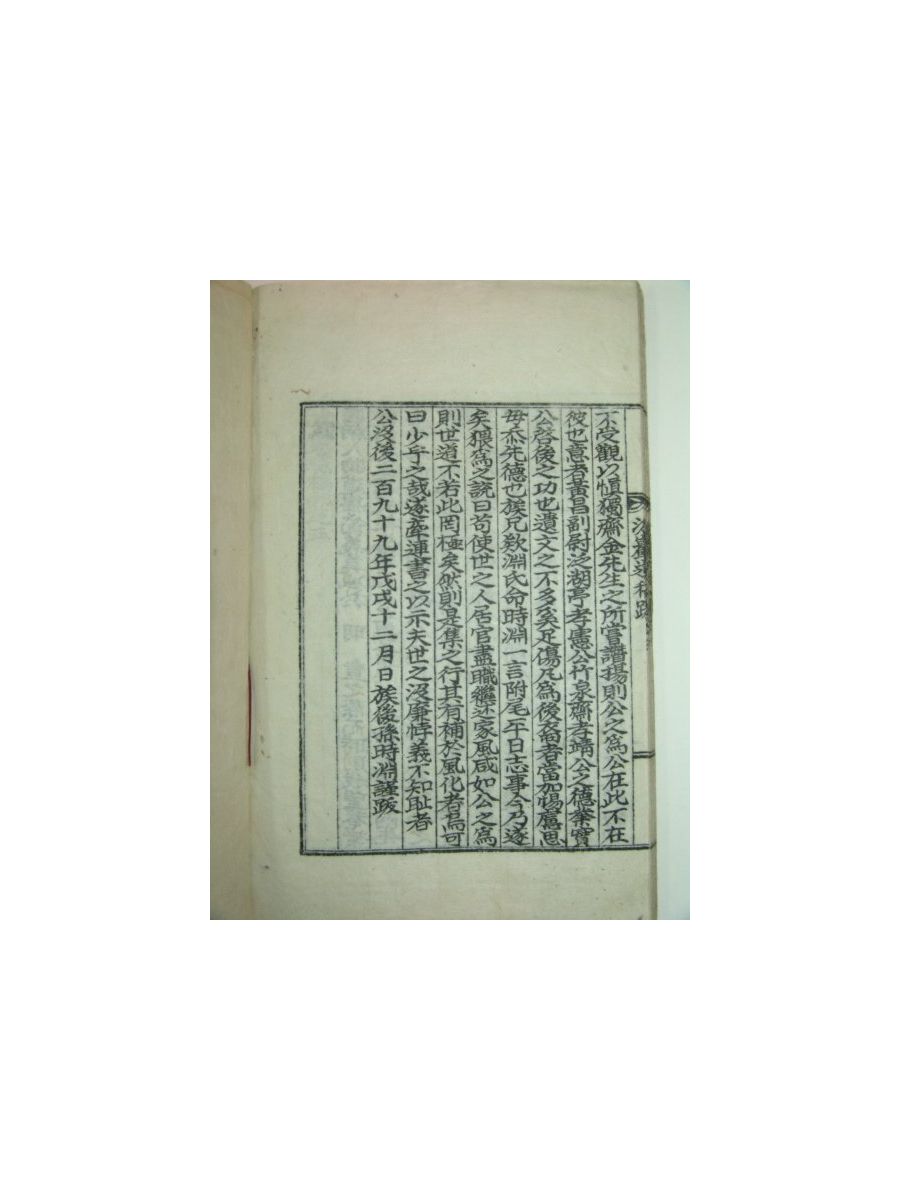 不受觀以愼獨齋金先生之所嘗讚揚則公之爲公在此不在
彼也意者黃昌副尉泛湖亭孝憲公竹泉齋孝靖公之德業實
公啓後之功也遺文之不多奚足傷凡爲後裔者當加惕慮思
毋忝先德也族兄欽淵氏命時淵一言附尾平日志事今乃遂
矣猥爲之說曰苟使世之人居官盡職繼述家風咸如公之爲
則世道不若此罔極矣然則是集之行其有補於風化者烏可
曰少乎之哉遂牽連書之以示夫世之沒廉悖義不知恥者
公沒後二百九十九年戊戌十二月日族後孫時淵謹跋
遺稿跋